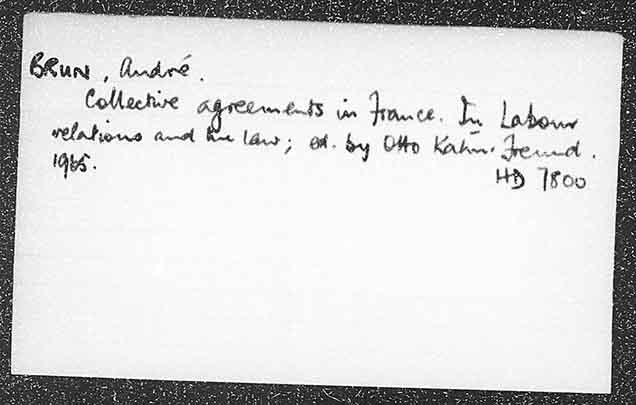 BRUN, André.
Collective agreements in France. In Labour
relations and the law; ed. by Otto Kahn-Freund.
1965.
HD 7800